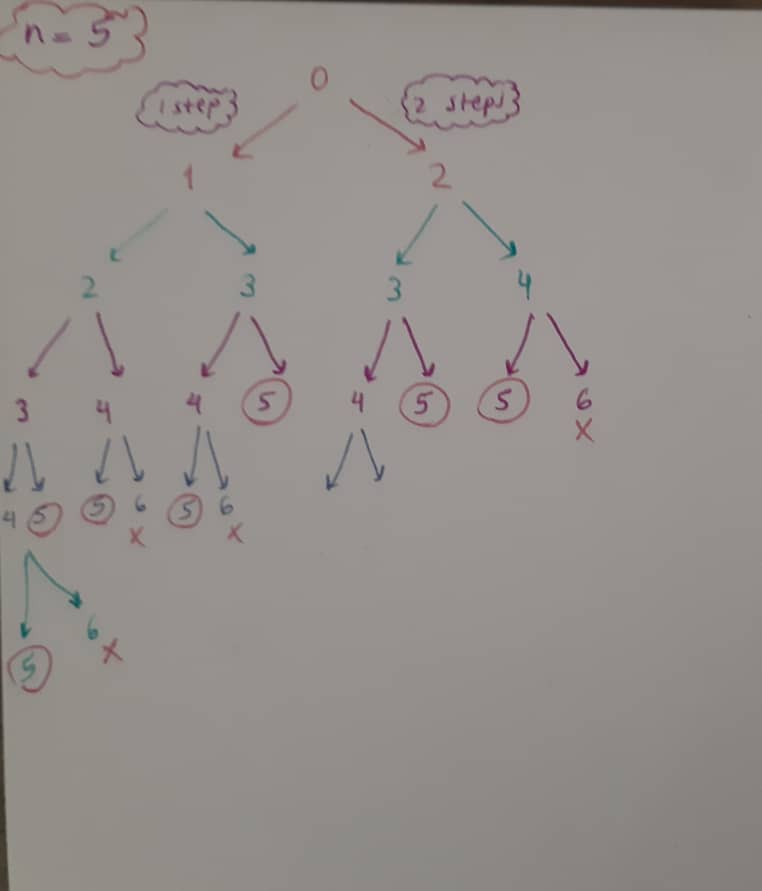 n = 5
0
1 step 2 steps
1 2
2 3 3 4
3 4 4 5 4 5 5 6
X
4 5 5 6 5 6
X X
6
X
5